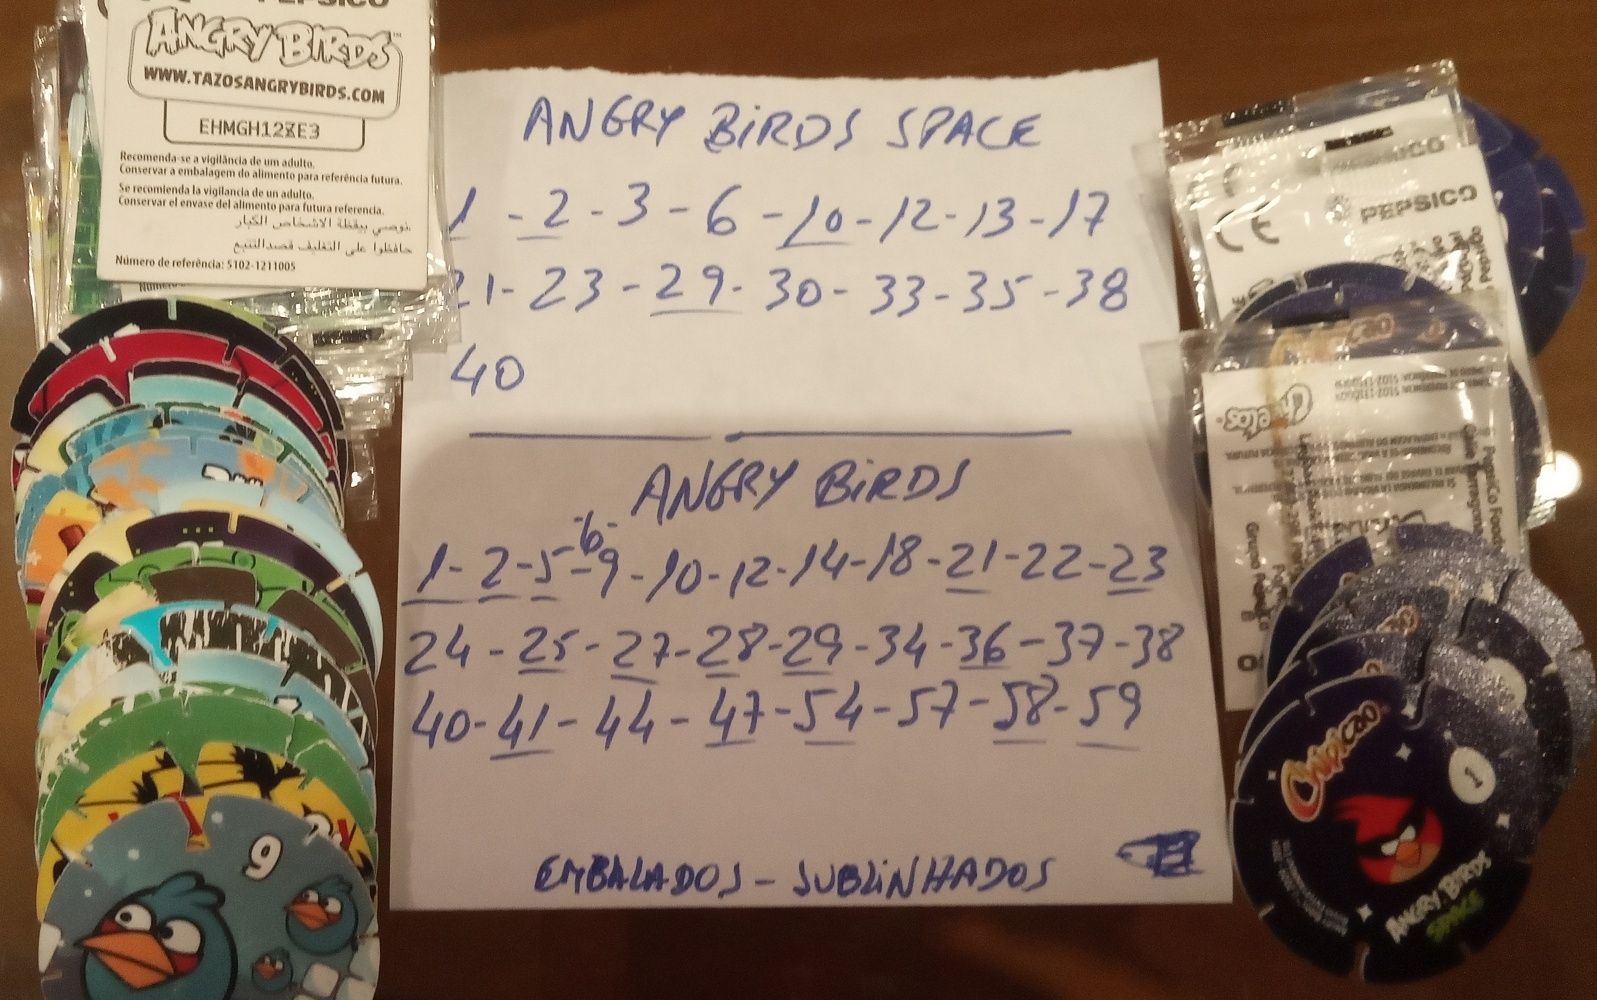 PEPSICO
ANGRY BIRDS™
WWW.TAZOSANGRYBIRDS.COM
EHMGH12ZE3
Recomenda-se a vigilância de um adulto.
Conservar a embalagem do alimento para referência futura.
Se recomienda la vigilancia de un adulto.
Conservar el envase del alimento para futura referencia.
نوصي بيقظة الاشخاص الكبار
حافظوا على التغليف قصد التتبع
Número de referência: 5102-1211005
ANGRY BIRDS SPACE
1 - 2 - 3 - 6 - 10 - 12 - 13 - 17
21 - 23 - 29 - 30 - 33 - 35 - 38
40
ANGRY BIRDS
-6-
1 - 2 - 5 - 9 - 10 - 12 - 14 - 18 - 21 - 22 - 23
24 - 25 - 27 - 28 - 29 - 34 - 36 - 37 - 38
40 - 41 - 44 - 47 - 54 - 57 - 58 - 59
EMBALADOS - SUBLINHADOS
9
CE
PEPSICO
Chipicao
1
ANGRY BIRDS
SPACE